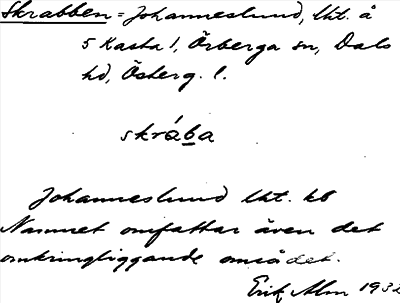 Skrabben = Johanneslund, lht. å
5 Kasta 1, Örberga sn, Dals
hd, Österg. l.
skrába
Johanneslund lht. kb
Namnet omfattar även det
omkringliggande området.
Erik Alm 1932